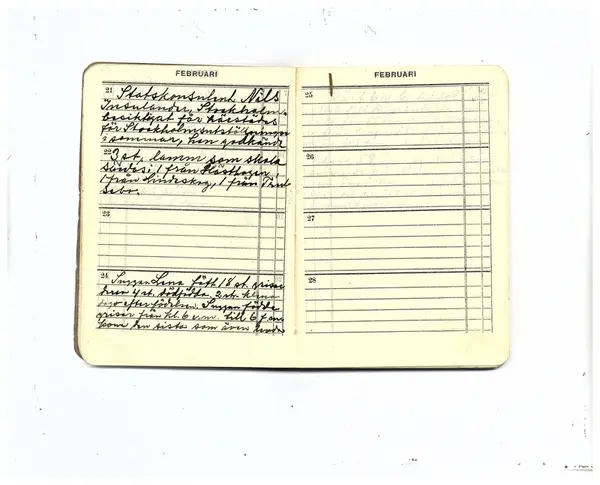 FEBRUARI
21 Statskonsulent Nils
Insulander, Stockholm
besiktgat för
för Stockholmsutställningen
i sommar, han godkände
22 3 st. lamm som skola
1 från
1 från Lindeskog, 1 från
23
24 Suggan Lena fött 18 st. grisar
4 st. dödfödda, 2 st. klena
efter födelsen. Suggan födde
grisar från kl. 6 e.m. till 6 f.m.
kom den sista som även
FEBRUARI
25
26
27
28